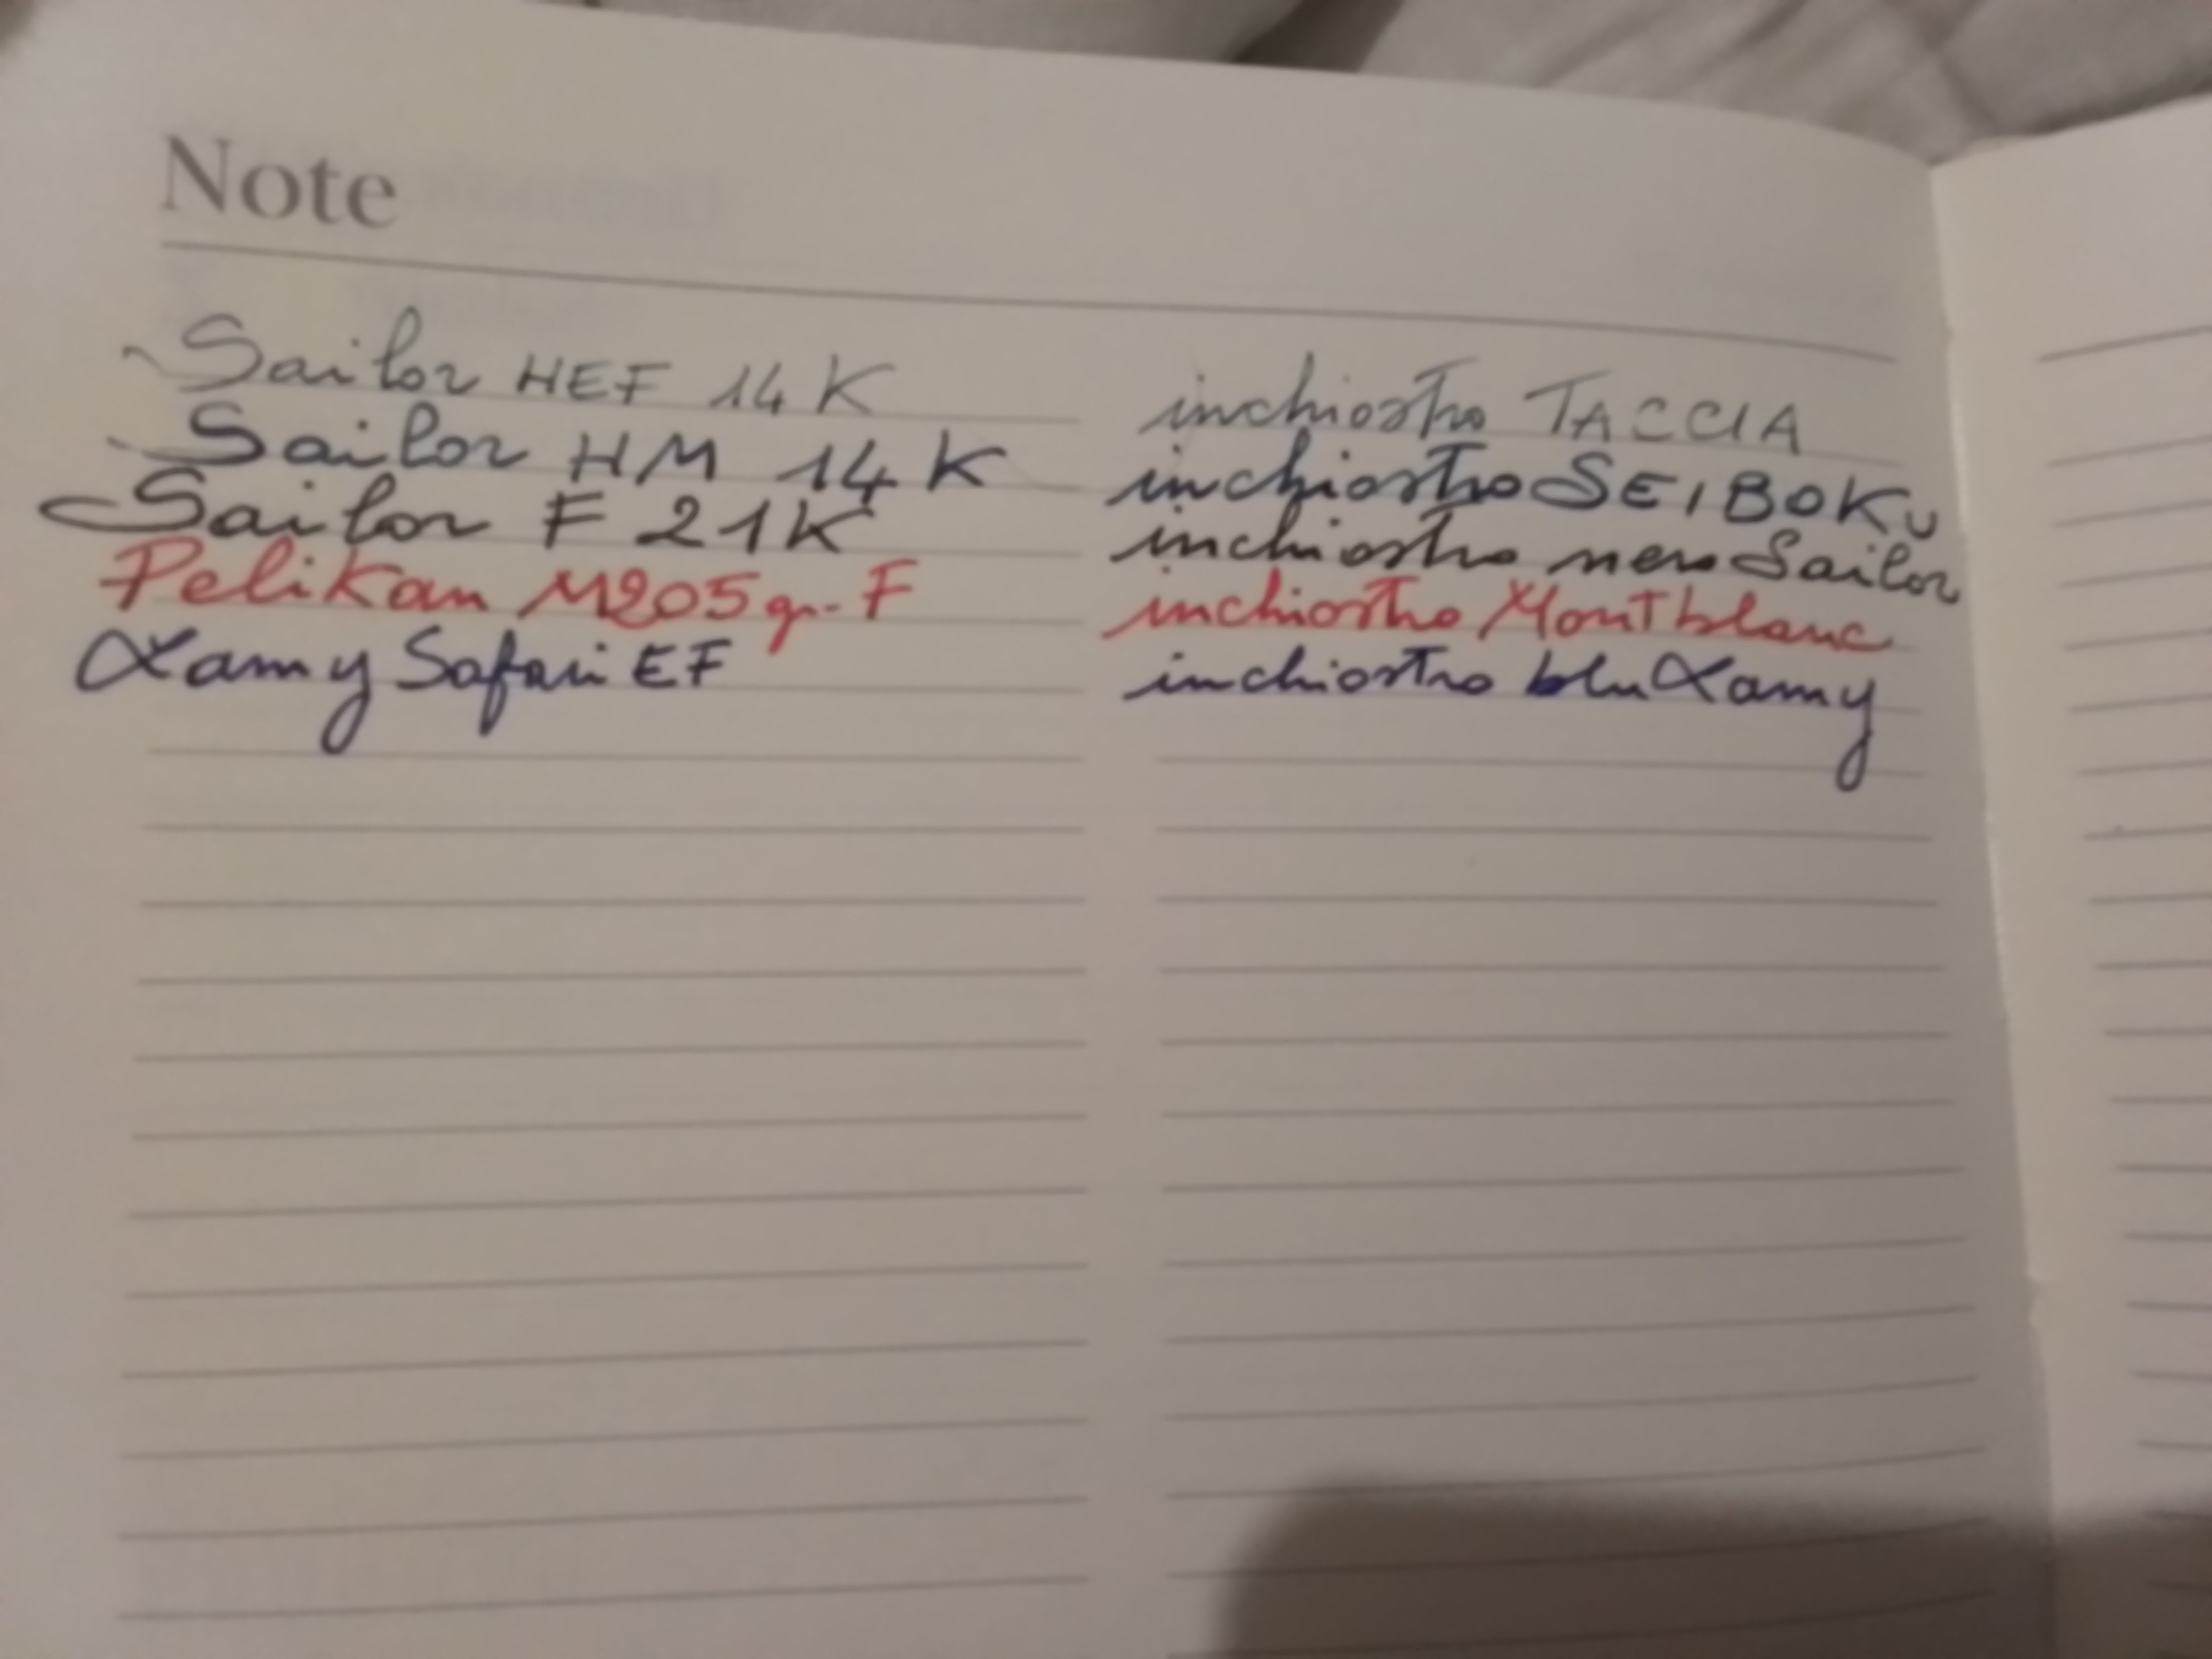 Note
Sailor HEF 14K inchiostro TACCIA
Sailor HM 14K inchiostro SEIBOKU
Sailor F 21K inchiostro nero Sailor
Pelikan M205 gr. F inchiostro Montblanc
Lamy Safari EF inchiostro blu Lamy